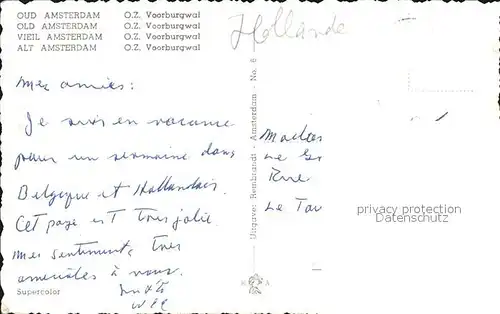 OUD AMSTERDAM O.Z. Voorburgwal
OLD AMSTERDAM O.Z. Voorburgwal
VIEIL AMSTERDAM O.Z. Voorburgwal
ALT AMSTERDAM O.Z. Voorburgwal
Hollande
Mes amies:
Je suis en vacance
pour un semaine dans
Belgique et Hollandais.
Cet pays est tres jolie.
mes sentiments tres
amicales à vous.
Supercolor
Uitgave: Rembrandt - Amsterdam - No. 6
Rue
privacy protection
Datenschutz